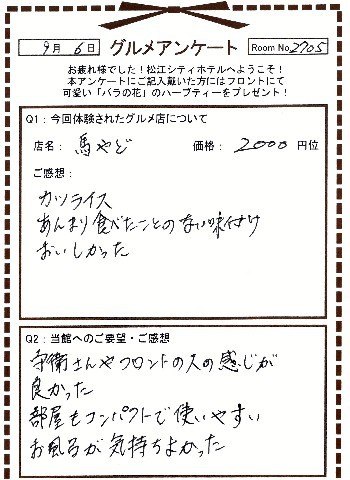 9月 6日 グルメアンケート Room No.2705
お疲れ様でした！松江シティホテルへようこそ！
本アンケートにご記入戴いた方にはフロントにて
可愛い「バラの花」のハーブティーをプレゼント！
Q1：今回体験されたグルメ店について
店名： 馬やど 価格： 2000 円位
ご感想：
カツライス
あんまり食べたことのない味付け
おいしかった
Q2：当館へのご要望・ご感想
守衛さんやフロントの人の感じが
良かった
部屋もコンパクトで使いやすい
お風呂が気持ちよかった